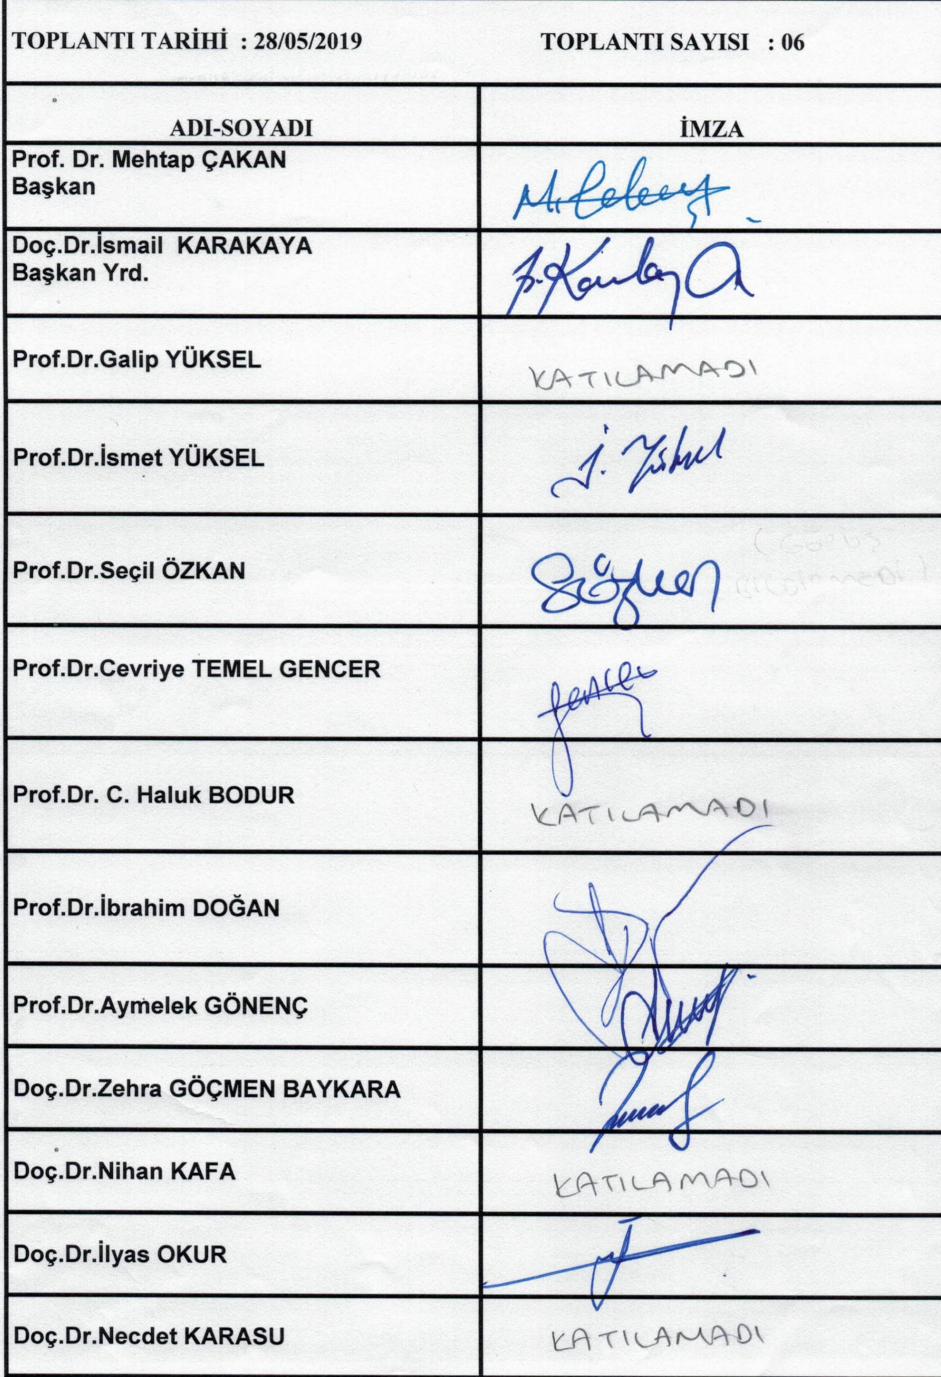 TOPLANTI TARİHİ : 28/05/2019 TOPLANTI SAYISI : 06
ADI-SOYADI İMZA
Prof. Dr. Mehtap ÇAKAN
Başkan
Doç.Dr.İsmail KARAKAYA
Başkan Yrd.
Prof.Dr.Galip YÜKSEL KATILAMADI
Prof.Dr.İsmet YÜKSEL
Prof.Dr.Seçil ÖZKAN
Prof.Dr.Cevriye TEMEL GENCER
Prof.Dr. C. Haluk BODUR KATILAMADI
Prof.Dr.İbrahim DOĞAN
Prof.Dr.Aymelek GÖNENÇ
Doç.Dr.Zehra GÖÇMEN BAYKARA
Doç.Dr.Nihan KAFA KATILAMADI
Doç.Dr.İlyas OKUR
Doç.Dr.Necdet KARASU KATILAMADI